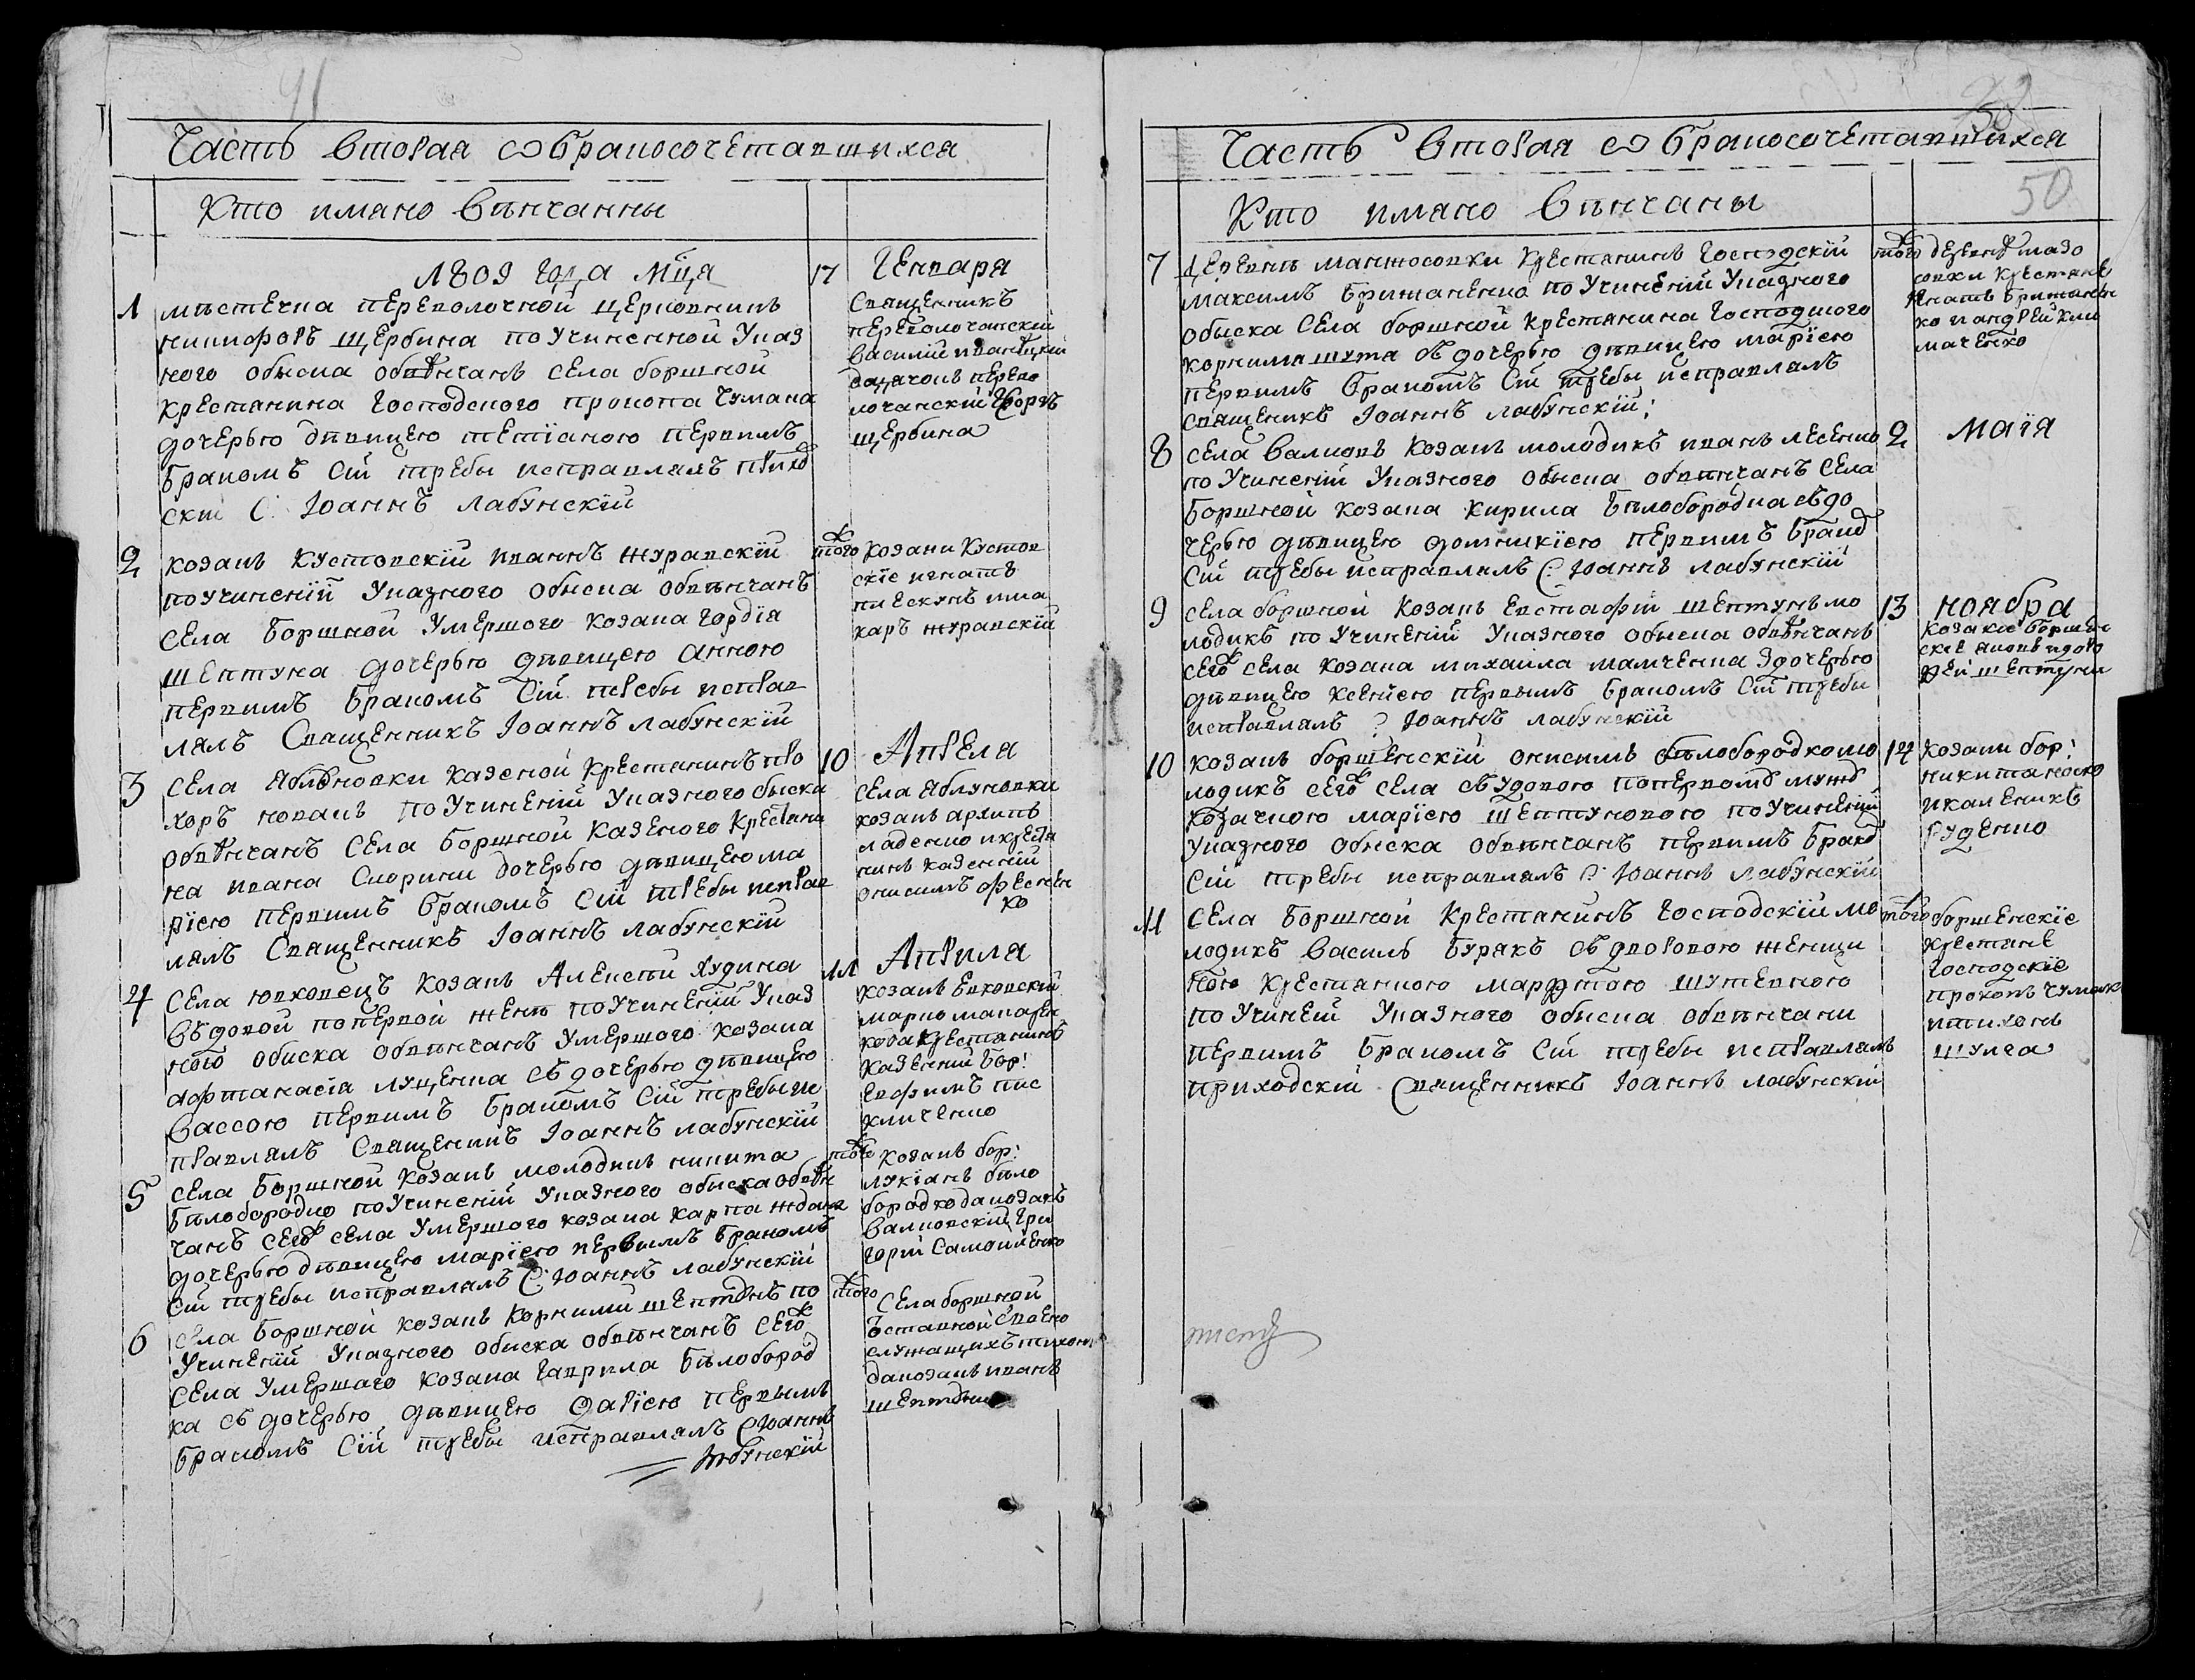 91
Часть вторая ѡ бракосочетавшихся
Кто имяно венчанны
1809 года мца
17 Генваря
1 мѣстечка переволочной церковникъ
никифоръ щербина по учиненной указ
ного обыска обвѣнчанъ села боршной
крестянина господского прокопа чумака
дочерью дѣвицею тетїаною первимъ
бракомъ сїи требы исправлялъ приход
скїи С: Іоаннъ лабунскїй
Священникъ
переволочанскїй
василїй иваницкїй
да дячокъ перево
лочанскїй
щербина
2 козакъ кустовскїй иваннъ журавскїй
по учиненїй указного обыска обвѣнчанъ
села боршной умершого козака гордїя
шептуна дочерью дѣвицею анною
первимъ бракомъ сїи требы исправ
лялъ Священникъ Іоаннъ лабунскїй
того козаки кустов
скїе игнатъ
пискунъ и ма
каръ журавскїй
3 села яблоновки казеной крестянинъ про
хоръ ковалъ по учиненїй указного обыска
обвѣнчанъ села боршной казеного крестяни
на ивана скорини дочерью дѣвицею ма
рїею первимъ бракомъ сїи требы исправ
лялъ Священникъ Іоаннъ лабунскїй
10 Апреля
села яблуновки
козакъ архипъ
ладенко и крестя
нинъ казеннїй
онисимъ фесенен
ко
4 села юрковецъ козакъ Алексѣй худина
въдовой по первой женѣ по учиненїй указ
ного обиска обвѣнчанъ умершого козака
афтанасїя луценка съ дочерью дѣвицею
вассою первимъ бракомъ сїи требы ис
правлялъ Священникъ Іоаннъ лабунскїй
11 Априла
козакъ
марко макарен
ко да крестянинъ
казеннїй бор:
евфимъ пис
кличенко
5 села боршной козакъ молодикъ никита
бѣлобородко по учиненїй указного обыска обвѣн
чанъ сего села умершого козака карпа ждана
дочерью дѣвицею марїею первымъ бракомъ
сїи требы исправлялъ С: Іоаннъ лабунскїй
того козакъ бор:
лукїанъ бѣло
бородко да козакъ
валковскїй гри
горїй самойленко
6 села боршной козакъ корнилїй шептунъ по
учиненїй указного обиска обвѣнчанъ сего
села умершаго козака гаврила бѣлобород
ка съ дочерью дѣвицею дарїею первымъ
бракомъ сїи требы исправлялъ С Іоаннъ
лабунскїй
того села боршной
ѡставной своено
служащихъ тихонъ
да козакъ иванъ
шептунъ
50
Часть вторая ѡ бракосочетавшихся
50
Кто имяно вѣнчаны
7 деревнѣ манжосовки крестянинъ господскїй
максимъ брижаненко по учиненїй указного
обиска села боршной крестянина господского
корнилїя шута съ дочерью дѣвицею марїею
первимъ бракомъ сїи требы исправлялъ
священикъ Іоаннъ лабунскїй:
того деревнѣ мазо
совки крестяне
игнатъ брижанен
ко и андрей кли
маченко
8 села валковъ козакъ молодикъ иванъ лесенко
по учиненїй указного обыска обвѣнчанъ села
боршной козака кирила бѣлобородка съ до
черью дѣвицею домникїею первимъ браком
сїи требы исправлялъ С: Іоаннъ лабунскїй
2 Маїя
9 села боршной козакъ евстафїй шептунъ мо
лодикъ по учиненїй указного обыска обвѣнчанъ
сего села козака михаила мамченка з дочерью
дѣвицею ксенїею первымъ бракомъ сїи требы
исправлялъ С: Іоаннъ лабунскїй
13 ноября
козакїе боршен
скїе яковъ и доро
фей шептуни
10 козакъ боршенскїй онисимъ бѣлобородко мо
лодикъ сего села съ удовою по первомъ мужѣ
козачкою марїею шептуновою по учиненїй
указного обыска обвѣнчанъ первимъ браком
сїи требы исправлялъ С: Іоаннъ лабунскїй
14 козаки бор:
никита носко
и каленикъ
руденко
11 села боршной крестянинъ господскїй мо
лодикъ василь бурякъ съ двововою женщи
ною крестянкою марфтою шутевною
по учиненїй указного обыска обвѣнчани
первимъ бракомъ сїи требы исправлялъ
приходскїй Священникъ Іоаннъ лабунскїй
того боршенскїе
крестяне
господскїе
прокопъ чумак
и тихонъ
шулга